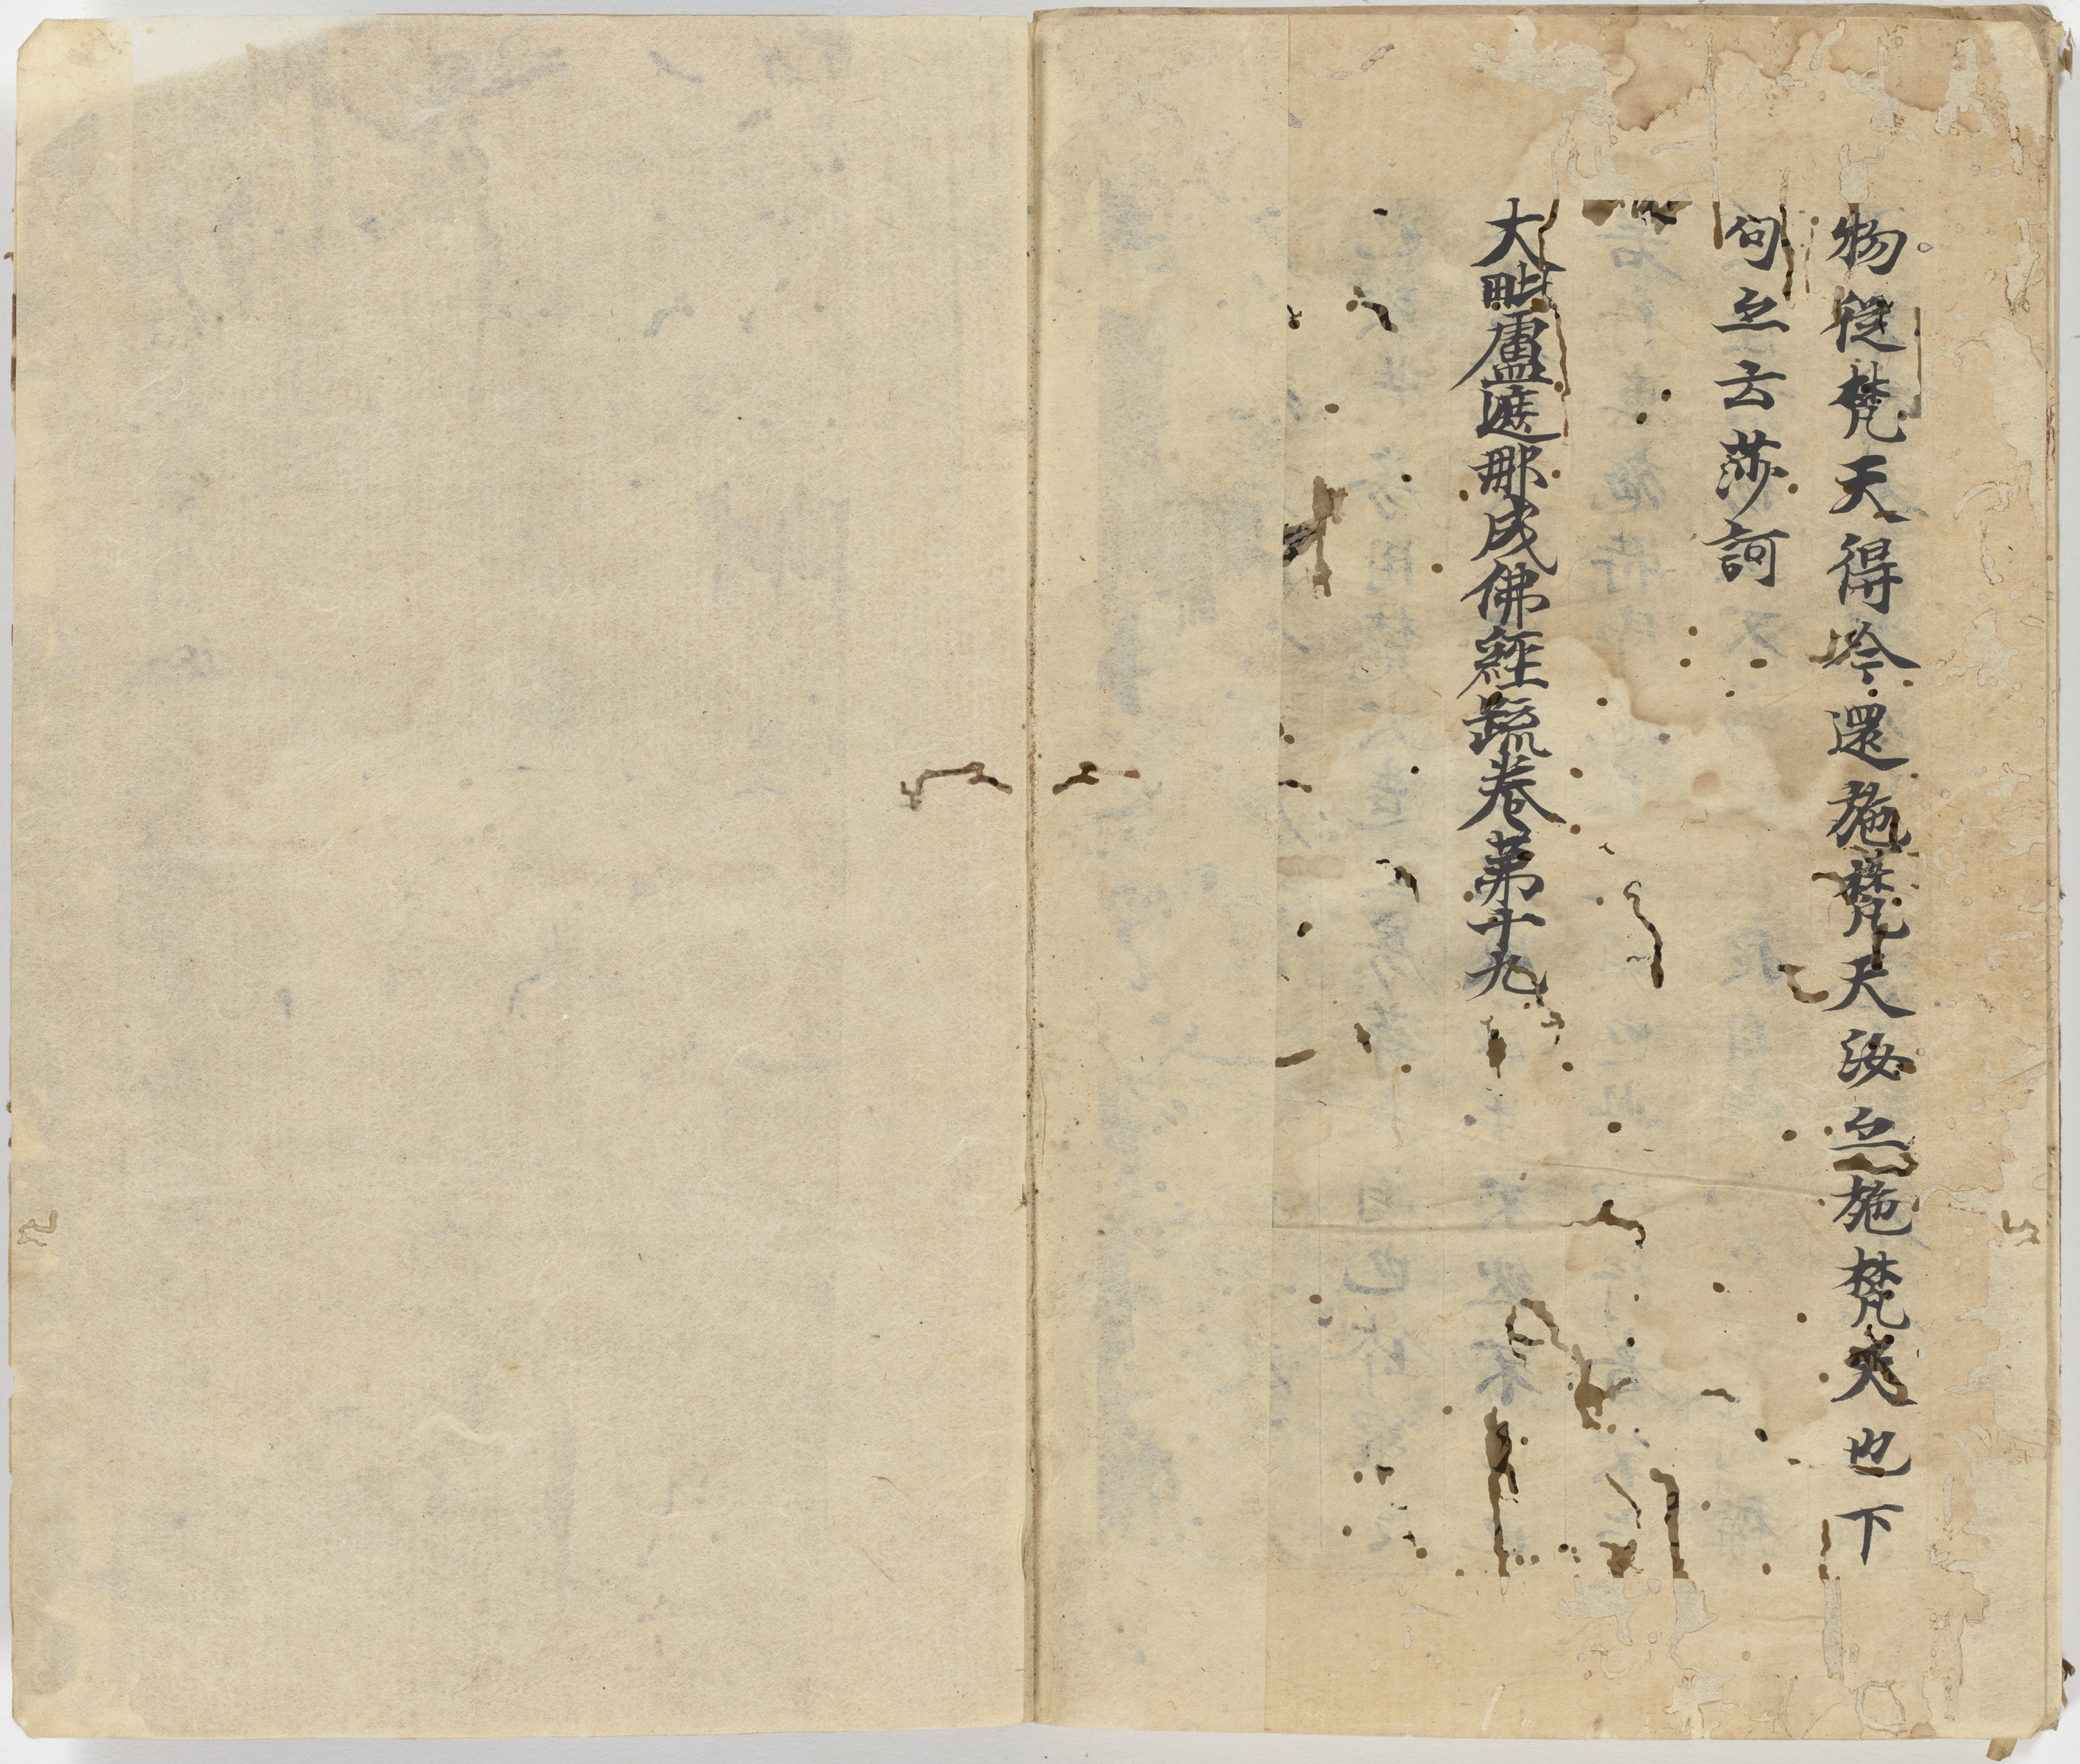 物從梵天得今還施梵天汝亦施梵天也下
句亦云莎訶
大毗盧遮那成佛經疏卷第十九